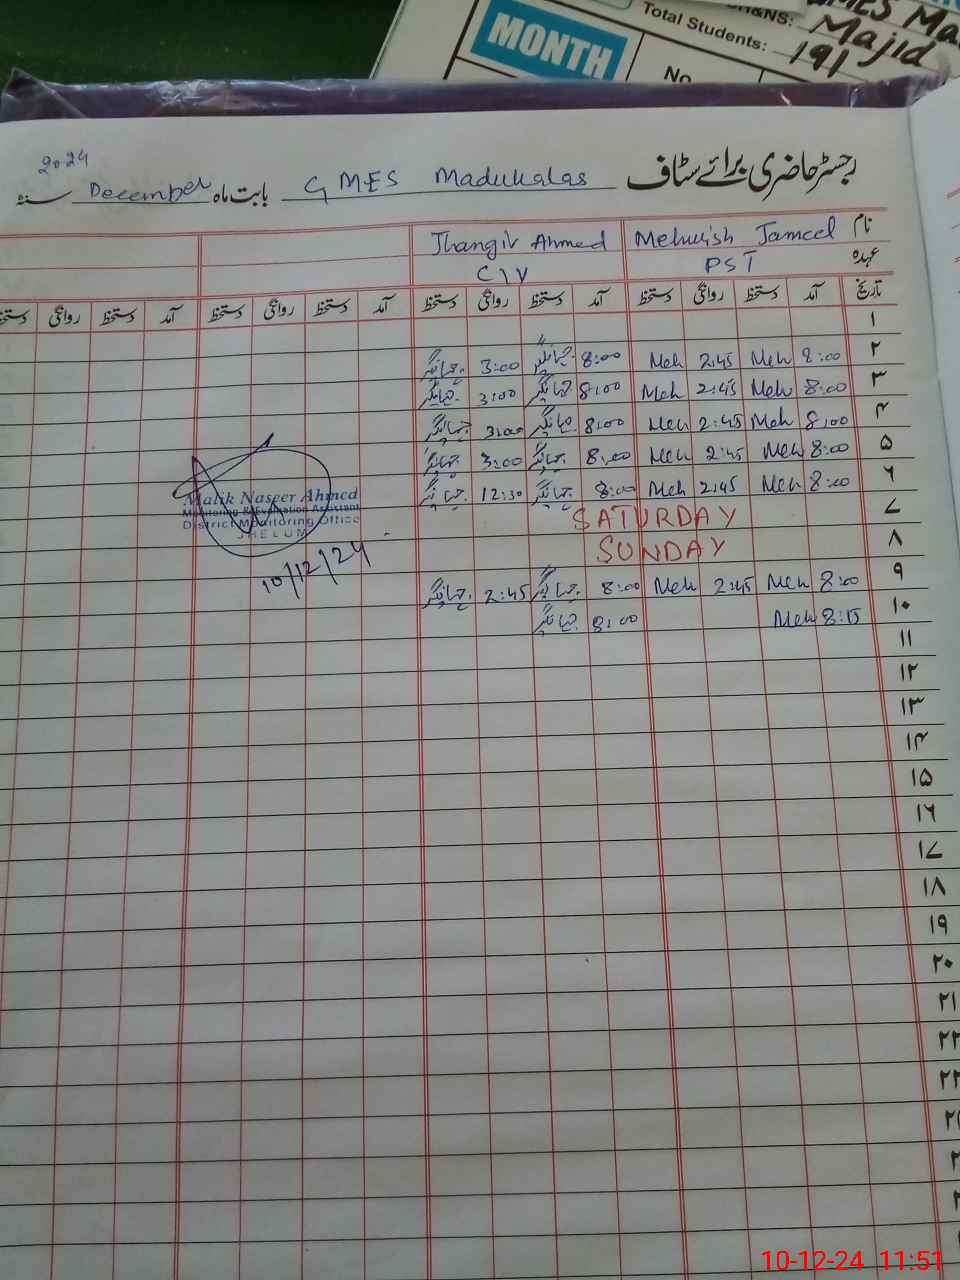 MONTH
H&NS:
Total Students:
Majid
191
No
2024
رجسٹر حاضری برائے سٹاف GMES Madukalas بابت ماہ December سنہ
نام Mehwish Jameel Jhangir Ahmed
عہدہ PST C/V
تاریخ آمد دستخط روانگی دستخط آمد دستخط روانگی دستخط آمد دستخط روانگی دستخط آمد دستخط روانگی دستخط
۱
۲ 8:00 Meh 2:45 Meh 8:00 جہانگیر 3:00 جہانگیر
۳ 8:00 Meh 2:45 Meh 8:00 جہانگیر 3:00 جہانگیر
۴ 8:00 Meh 2:45 Meh 8:00 جہانگیر 3:00 جہانگیر
۵ 8:00 Meh 2:45 Meh 8:00 جہانگیر 3:00 جہانگیر
۶ 8:00 Meh 2:45 Meh 8:00 جہانگیر 12:30 جہانگیر
۷ SATURDAY
۸ SUNDAY
۹ 8:00 Meh 2:45 Meh 8:00 جہانگیر 2:45 جہانگیر
۱۰ 8:15 Meh 8:00 جہانگیر
۱۱
۱۲
۱۳
۱۴
۱۵
۱۶
۱۷
۱۸
۱۹
۲۰
۲۱
Malik Naseer Ahmed
Monitoring & Evaluation Assistant
District Monitoring Office
JHELUM
10/12/24
10-12-24 11:51